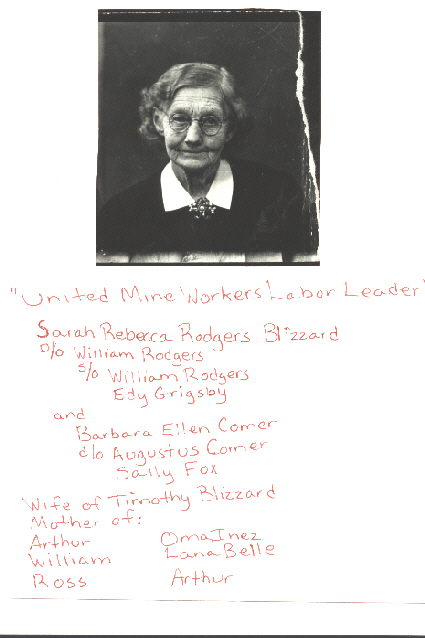 "United Mine Workers' Labor Leader"
Sarah Rebecca Rodgers Blizzard
D/o William Rodgers
s/o William Rodgers
Edy Grigsby
and
Barbara Ellen Comer
d/o Augustus Comer
Sally Fox
Wife of Timothy Blizzard
Mother of:
Arthur Oma Inez
William Lana Belle
Ross Arthur